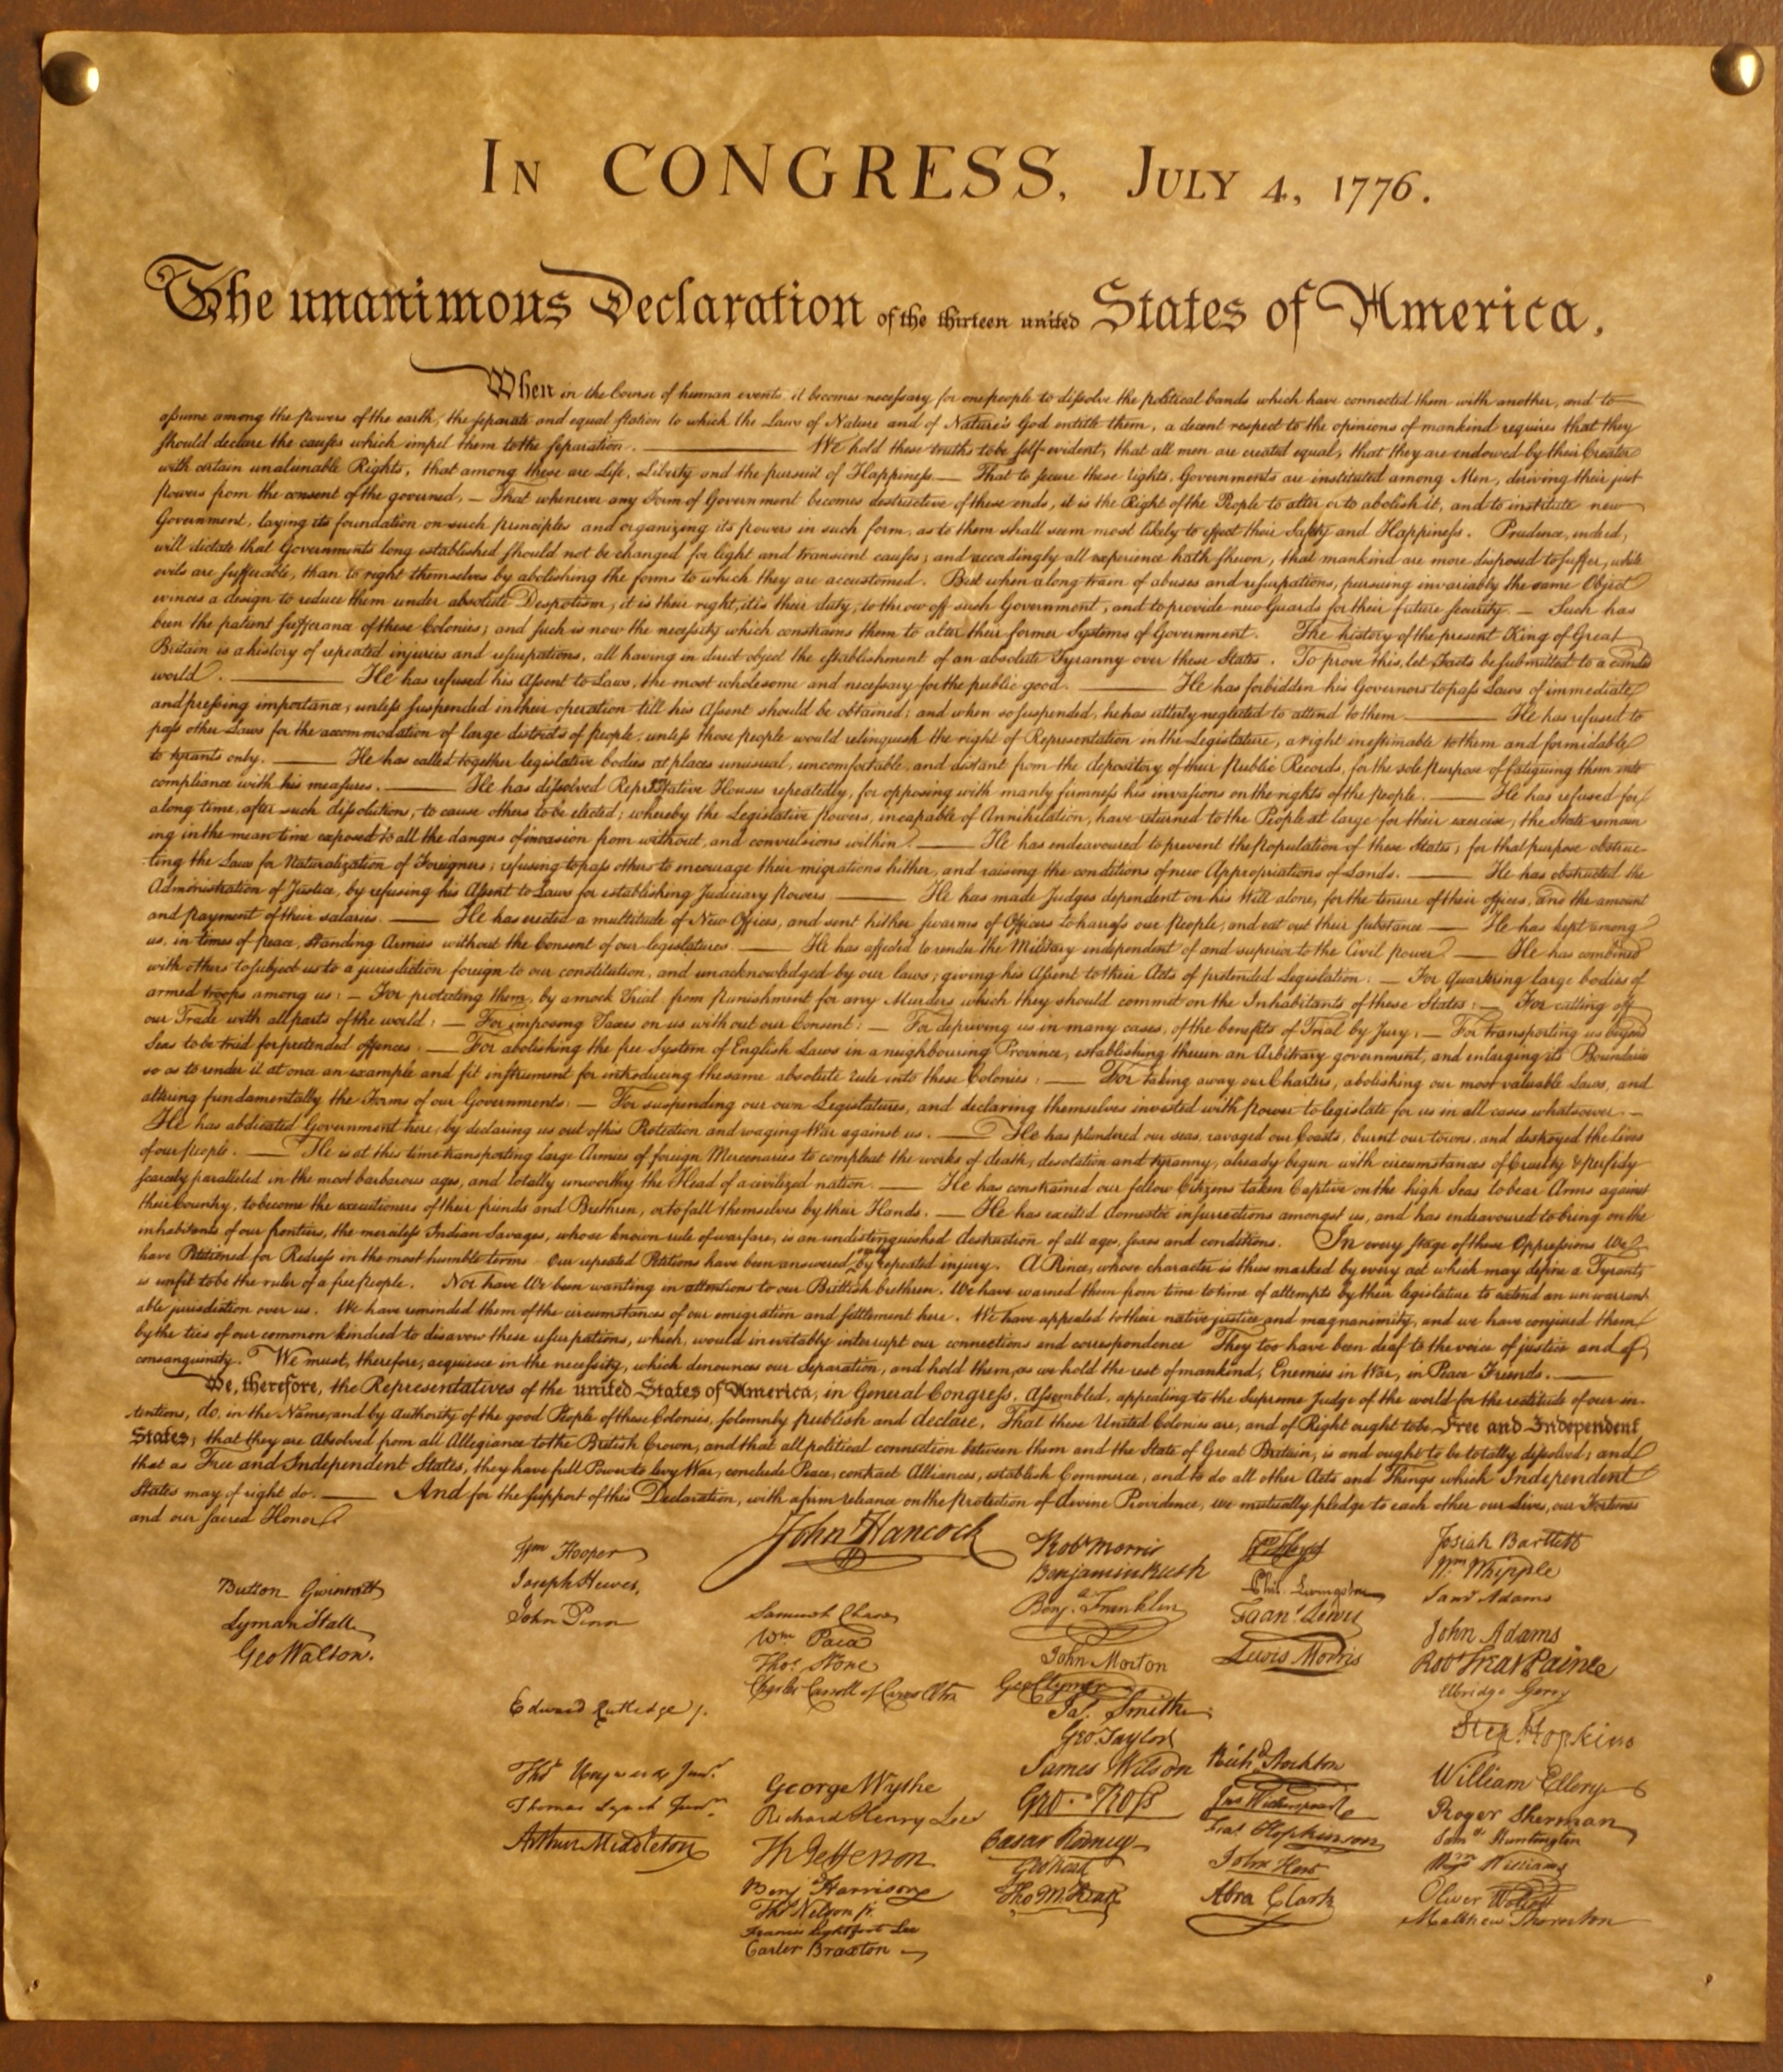 IN CONGRESS, JULY 4, 1776.
The unanimous Declaration of the thirteen united States of America,
When in the Course of human events, it becomes necessary for one people to dissolve the political bands which have connected them with another, and to
assume among the powers of the earth, the separate and equal station to which the Laws of Nature and of Nature's God entitle them, a decent respect to the opinions of mankind requires that they
should declare the causes which impel them to the separation. —— We hold these truths to be self-evident, that all men are created equal, that they are endowed by their Creator
with certain unalienable Rights, that among these are Life, Liberty and the pursuit of Happiness. — That to secure these rights, Governments are instituted among Men, deriving their just
powers from the consent of the governed, — That whenever any Form of Government becomes destructive of these ends, it is the Right of the People to alter or to abolish it, and to institute new
Government, laying its foundation on such principles and organizing its powers in such form, as to them shall seem most likely to effect their Safety and Happiness. Prudence, indeed,
will dictate that Governments long established should not be changed for light and transient causes; and accordingly all experience hath shewn, that mankind are more disposed to suffer, while
evils are sufferable, than to right themselves by abolishing the forms to which they are accustomed. But when a long train of abuses and usurpations, pursuing invariably the same Object
evinces a design to reduce them under absolute Despotism, it is their right, it is their duty, to throw off such Government, and to provide new Guards for their future security. — Such has
been the patient sufferance of these Colonies; and such is now the necessity which constrains them to alter their former Systems of Government. The history of the present King of Great
Britain is a history of repeated injuries and usurpations, all having in direct object the establishment of an absolute Tyranny over these States. To prove this, let Facts be submitted to a candid
world. —— He has refused his Assent to Laws, the most wholesome and necessary for the public good. —— He has forbidden his Governors to pass Laws of immediate
and pressing importance, unless suspended in their operation till his Assent should be obtained; and when so suspended, he has utterly neglected to attend to them. —— He has refused to
pass other Laws for the accommodation of large districts of people, unless those people would relinquish the right of Representation in the Legislature, a right inestimable to them and formidable
to tyrants only. —— He has called together legislative bodies at places unusual, uncomfortable, and distant from the depository of their Public Records, for the sole purpose of fatiguing them into
compliance with his measures. —— He has dissolved Representative Houses repeatedly, for opposing with manly firmness his invasions on the rights of the people. —— He has refused for
a long time, after such dissolutions, to cause others to be elected; whereby the Legislative powers, incapable of Annihilation, have returned to the People at large for their exercise; the State remain
ing in the mean time exposed to all the dangers of invasion from without, and convulsions within. —— He has endeavoured to prevent the population of these States; for that purpose obstruc-
ting the Laws for Naturalization of Foreigners; refusing to pass others to encourage their migrations hither, and raising the conditions of new Appropriations of Lands. —— He has obstructed the
Administration of Justice, by refusing his Assent to Laws for establishing Judiciary powers. —— He has made Judges dependent on his Will alone, for the tenure of their offices, and the amount
and payment of their salaries. —— He has erected a multitude of New Offices, and sent hither swarms of Officers to harrass our people, and eat out their substance. —— He has kept among
us, in times of peace, Standing Armies without the Consent of our legislatures. —— He has affected to render the Military independent of and superior to the Civil power. —— He has combined
with others to subject us to a jurisdiction foreign to our constitution, and unacknowledged by our laws; giving his Assent to their Acts of pretended Legislation: — For Quartering large bodies of
armed troops among us: — For protecting them, by a mock Trial, from punishment for any Murders which they should commit on the Inhabitants of these States: — For cutting off
our Trade with all parts of the world: — For imposing Taxes on us without our Consent: — For depriving us in many cases, of the benefits of Trial by Jury: — For transporting us beyond
Seas to be tried for pretended offences: — For abolishing the free System of English Laws in a neighbouring Province, establishing therein an Arbitrary government, and enlarging its Boundaries
so as to render it at once an example and fit instrument for introducing the same absolute rule into these Colonies: — For taking away our Charters, abolishing our most valuable Laws, and
altering fundamentally the Forms of our Governments: — For suspending our own Legislatures, and declaring themselves invested with power to legislate for us in all cases whatsoever. —
He has abdicated Government here, by declaring us out of his Protection and waging War against us. — He has plundered our seas, ravaged our Coasts, burnt our towns, and destroyed the lives
of our people. — He is at this time transporting large Armies of foreign Mercenaries to compleat the works of death, desolation and tyranny, already begun with circumstances of Cruelty & perfidy
scarcely paralleled in the most barbarous ages, and totally unworthy the Head of a civilized nation. — He has constrained our fellow Citizens taken Captive on the high Seas to bear Arms against
their Country, to become the executioners of their friends and Brethren, or to fall themselves by their Hands. — He has excited domestic insurrections amongst us, and has endeavoured to bring on the
inhabitants of our frontiers, the merciless Indian Savages, whose known rule of warfare, is an undistinguished destruction of all ages, sexes and conditions. In every stage of these Oppressions We
have Petitioned for Redress in the most humble terms: Our repeated Petitions have been answered only by repeated injury. A Prince, whose character is thus marked by every act which may define a Tyrant,
is unfit to be the ruler of a free people. Nor have We been wanting in attentions to our Brittish brethren. We have warned them from time to time of attempts by their legislature to extend an unwarrant-
able jurisdiction over us. We have reminded them of the circumstances of our emigration and settlement here. We have appealed to their native justice and magnanimity, and we have conjured them
by the ties of our common kindred to disavow these usurpations, which, would inevitably interrupt our connections and correspondence They too have been deaf to the voice of justice and of
consanguinity. We must, therefore, acquiesce in the necessity, which denounces our Separation, and hold them, as we hold the rest of mankind, Enemies in War, in Peace Friends. ——
We, therefore, the Representatives of the united States of America, in General Congress, Assembled, appealing to the Supreme Judge of the world for the rectitude of our in-
tentions, do, in the Name, and by Authority of the good People of these Colonies, solemnly publish and declare, That these United Colonies are, and of Right ought to be Free and Independent
States; that they are Absolved from all Allegiance to the British Crown, and that all political connection between them and the State of Great Britain, is and ought to be totally dissolved; and
that as Free and Independent States, they have full Power to levy War, conclude Peace, contract Alliances, establish Commerce, and to do all other Acts and Things which Independent
States may of right do. —— And for the support of this Declaration, with a firm reliance on the protection of divine Providence, we mutually pledge to each other our Lives, our Fortunes
and our sacred Honor.
Button Gwinnett
Lyman Hall
Geo Walton.
Wm Hooper
Joseph Hewes,
John Penn
Edward Rutledge /.
Thos Heyward Junr.
Thomas Lynch Junr.
Arthur Middleton
John Hancock
Samuel Chase
Wm Paca
Thos Stone
Charles Carroll of Carrollton
George Wythe
Richard Henry Lee
Th Jefferson
Benj Harrison
Thos Nelson jr.
Francis Lightfoot Lee
Carter Braxton
Robt Morris
Benjamin Rush
Benj. Franklin
John Morton
Geo Clymer
Jas. Smith
Geo. Taylor
James Wilson
Geo. Ross
Caesar Rodney
Geo Read
Tho M:Kean
Phil. Livingston
Frans. Lewis
Lewis Morris
Richd Stockton
Jno Witherspoon
Fras. Hopkinson
John Hart
Abra Clark
Josiah Bartlett
Wm Whipple
Saml Adams
John Adams
Robt Treat Paine
Elbridge Gerry
Step. Hopkins
William Ellery
Roger Sherman
Saml Huntington
Wm Williams
Oliver Wolcott
Matthew Thornton